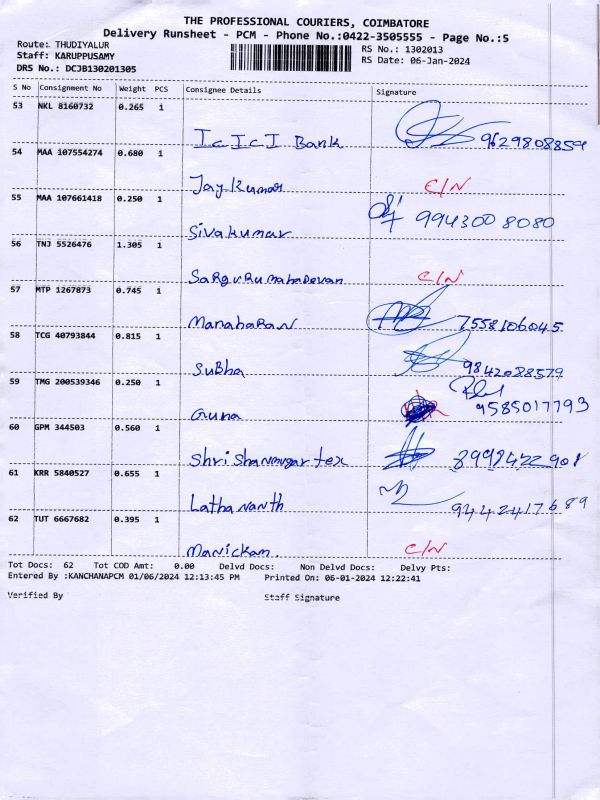 THE PROFESSIONAL COURIERS, COIMBATORE
Delivery Runsheet - PCM - Phone No.:0422-3505555 - Page No.:5
Route: THUDIYALUR RS No.: 1302013
Staff: KARUPPUSAMY RS Date: 06-Jan-2024
DRS No.: DCJB130201305
S No Consignment No Weight PCS Consignee Details Signature
53 NKL 8160732 0.265 1
IcIcI Bank 9629808859
54 MAA 107554274 0.680 1
Jaykumar C/N
55 MAA 107661418 0.250 1
Sivakumar 9943008080
56 TNJ 5526476 1.305 1
Sargurumahadevan C/N
57 MTP 1267873 0.745 1
Manaharan 7558106045
58 TCG 40793844 0.815 1
Subha 9842088579
59 TMG 200539346 0.250 1
Guna 9585017793
60 GPM 344503 0.560 1
Shri Shanmugar tex
61 KRR 5840527 0.655 1
Lathananth 9442417689
62 TUT 6667682 0.395 1
Manickam. C/N
Tot Docs: 62 Tot COD Amt: 0.00 Delvd Docs: Non Delvd Docs: Delvy Pts:
Entered By :KANCHANAPCM 01/06/2024 12:13:45 PM Printed On: 06-01-2024 12:22:41
Verified By Staff Signature